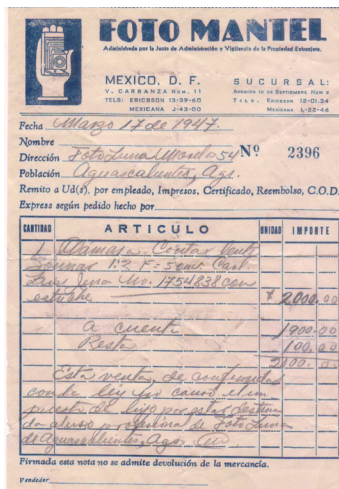 FOTO MANTEL
Administrada por la Junta de Administración y Vigilancia de la Propiedad Extranjera.
MEXICO, D. F.
V. CARRANZA NUM. 11
TELS: ERICSSON 13-39-60
MEXICANA J-43-00
SUCURSAL:
AVENIDA 16 DE SEPTIEMBRE NUM 5
TELS. ERICSSON 12-01-34
MEXICANA L-22-46
Fecha Marzo 17 de 1947.
Nombre
Dirección Foto Luna 54
Nº 2396
Población Aguascalientes, Ags.
Remito a Ud(s). por empleado, Impresos, Certificado, Reembolso, C.O.D.
Express según pedido hecho por
CANTIDAD ARTICULO UNIDAD IMPORTE
1 Camara Contax
Sonnar 1:2 F-5 cmt. Carl
Zeiss Jena No. 1754838 con
estuche $ 2,000.00
a cuenta 1900.00
Resta 100.00
2000.00
Esta venta de conformidad
con la ley
de lujo
Foto Luna
de Aguascalientes, Ags.
Firmada esta nota no se admite devolución de la mercancía.
Vendedor